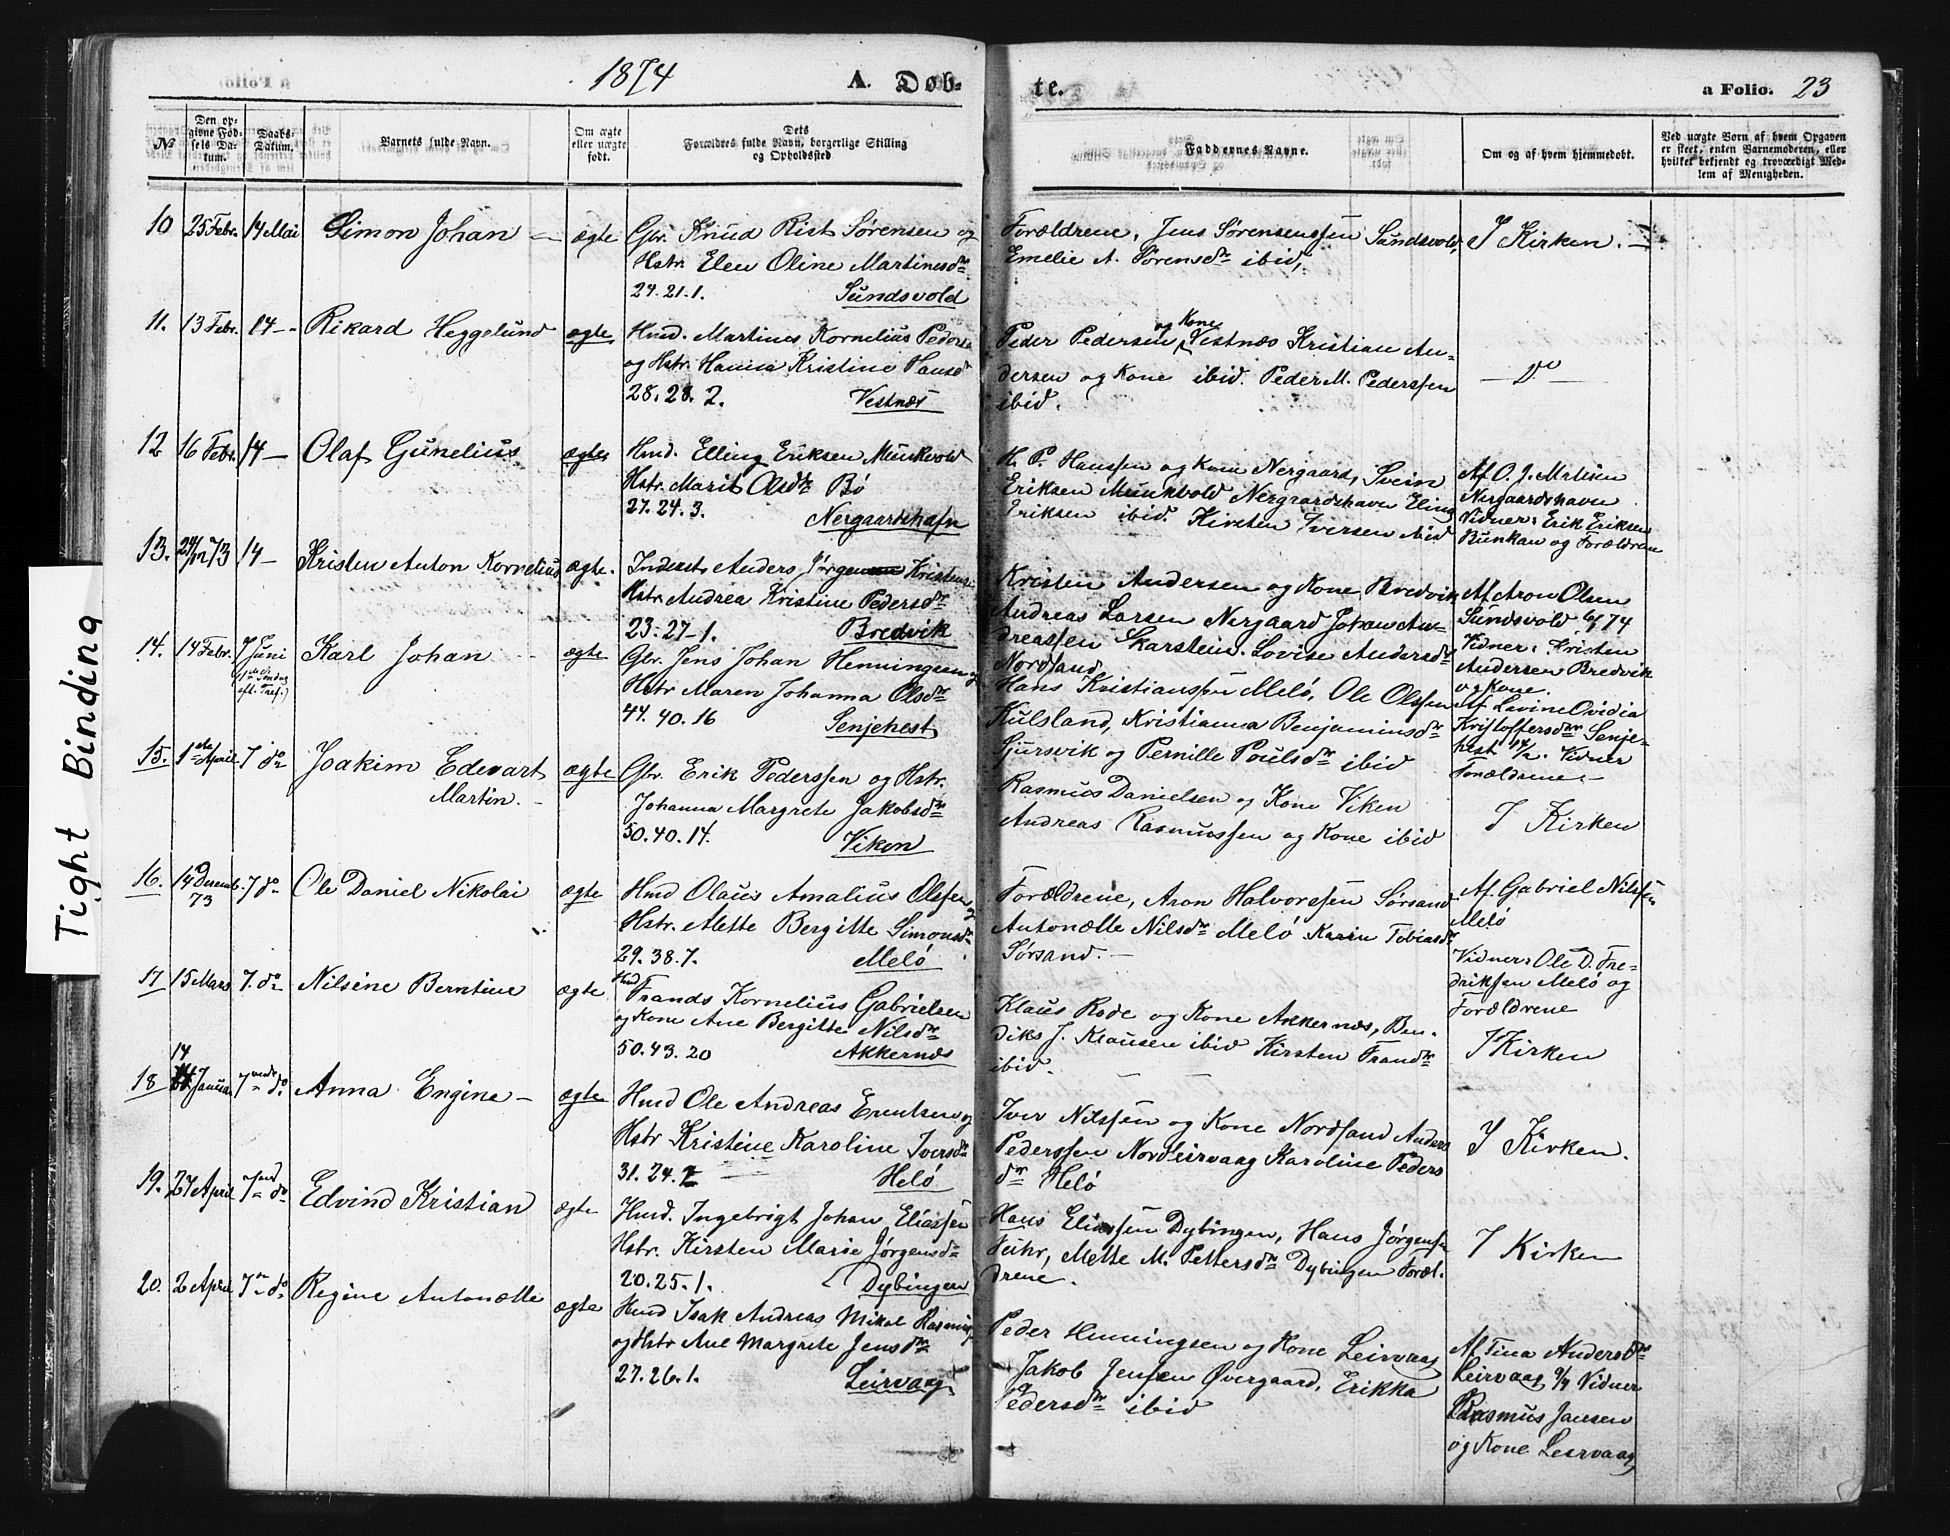 1874 A. Døb- te. a Folio. 23
No
Den op-
givne Fød-
sels Da-
tum.
Daabs-
Datum.
Barnets fulde Navn.
Om ægte
eller uægte
født.
Dets
Forældres fulde Navn, borgerlige Stilling
og Opholdssted
Faddernes Navne.
Om og af hvem hjemmedøbt.
Ved uægte Børn af hvem Opgaven
er skeet, enten Barnemoderen, eller
hvilket bekjendt og troværdigt Med-
lem af Menigheden.
10 25 Febr. 14 Mai Simon Johan — ægte Gbr. Knud Rist Sørensen og
Hstr. Elen Oline Martinesdr
24. 21. 1. Sundsvold
Forældrene, Jens Sørensenssen Sundsvold,
Emelie A. Sørensdr ibid,
I Kirken. —
11. 13 Febr. 14 - - Rikard Heggelund ægte Hmd. Martines Kornelius Peders
og Hstr. Hanna Kristine Hansd
28. 28. 2. Vestnæs
Peder Pedersen og Kone Vestnæs Kristian An-
dersen og Kone ibid. Peder M. Pederssen
ibid.
— Do —
12 16 Febr. 14 — Olaf Gunelius ægte Hmd. Elling Eriksen Munkvold
Hstr. Marit Olsdtr Bö
27. 24. 3. Nergaardshafn
H. P. Hanssen og Kone Nergaard, Svein
Eriksen Munkvold Nergaardshavn Eling
Eriksen ibid. Kirsten Iversen ibid
Af O. J. Matisen
Nergaardshavn
Vidner: Erik Eriksen
Bunkan og Forældrene
13. 24/12 73 14 — Kristen Anton Kornelius ægte. Inderst. Anders Jørgensen Kristens
Hstr. Andrea Kristine Pedersdr
23. 27 - 1. Bredvik
Kristen Andersen og Kone Bredvik
Andreas Larsen Nergaard Johan An-
dreassen Skarstein. Lovise Andersdr
Nordsand
Af Aron Olsen
Sundsvold 6/1 74
Vidner: Kristen
Andersen Bredvik
og Kone.
14. 14 Febr. 7 Juni Karl Johan ægte Gbr. Jens Johan Henningsen og
(1ste Søndag
eft. Tref.)
Hstr Maren Johanna Olsdr
44. 40. 16 Senjehest
Hans Kristianssen Melö, Ole Olssen
Kulsland, Kristianna Benjaminsdr
Sjursvik og Pernille Poulsdr ibid
Af Lavine Ovidia
Kristoffersdtr Senje-
hest 14/2. Vidner
Forældrene. —
15. 1ste April 7 do Joakim Edevart
Martin. — ægte Gbr. Erik Pederssen og Hstr.
Johanna Margrete Jakobsdr
50. 40. 14. Viken
Rasmus Danielsen og Kone Viken
Andreas Rasmussen og Kone ibid
I Kirken
16. 14 Decemb. 73 7 do Ole Daniel Nikolai ægte Hmd Olaus Amalius Olssen og
Hstr. Mette Bergitte Simonsdr
29. 38. 7. Melö
Forældrene, Aron Halvorssen Sørsand
Antonætte Nilsdr Melö Karin Tobiasdr
Sørsand. —
Af Gabriel Nilssen
Melö
Vidner: Ole D. Fre-
driksen Melö og
Forældrene
17 15 Mars 7. do Nilsine Berntine ægte Hmd Frands Kornelius Gabrielsen
og Kone Ane Bergitte Nilsdr
50. 43. 20 Akkernæs
Klaus Rode og Kone Akkernæs, Ben-
diks J. Klausen ibid Kirsten Frandr
ibid.
I Kirken
18 14 Januar 7nde do Anna Engine — ægte Hmd Ole Andreas Erentsen og
Hstr Kristine Karoline Iversdr
31. 24. 2 Helö
Iver Nilssen og Kone Nordsand Anders
Pederssen Nordleirvaag Karoline Peders
dr Helö
I Kirken.
19. 27 April 7nd do Edvind Kristian ægte Hmd. Ingebrigt Johan Eliassen
Hstr. Kirsten Marie Jørgensdr
20. 25. 1. Dybingen
Hans Eliassen Dybingen, Hans Jørgens.
Fuhr, Mette M. Pettersdr Dybingen Foræl-
drene.
I Kirken
20. 2 April 7de do Regine Antonætte ægte Hmd Isak Andreas Mikal Rasmus
og Hstr Ane Margrete Jensdr
27. 26. 1. Leirvaag
Peder Henningsen og Kone Leirvaag
Jakob Jensen Øvergaard, Erikka
Pedersdr ibid
Af Tina Andersdtr
Leirvaag 9/4 Vidner
Rasmus Jansen
og Kone Leirvaag
Tight Binding